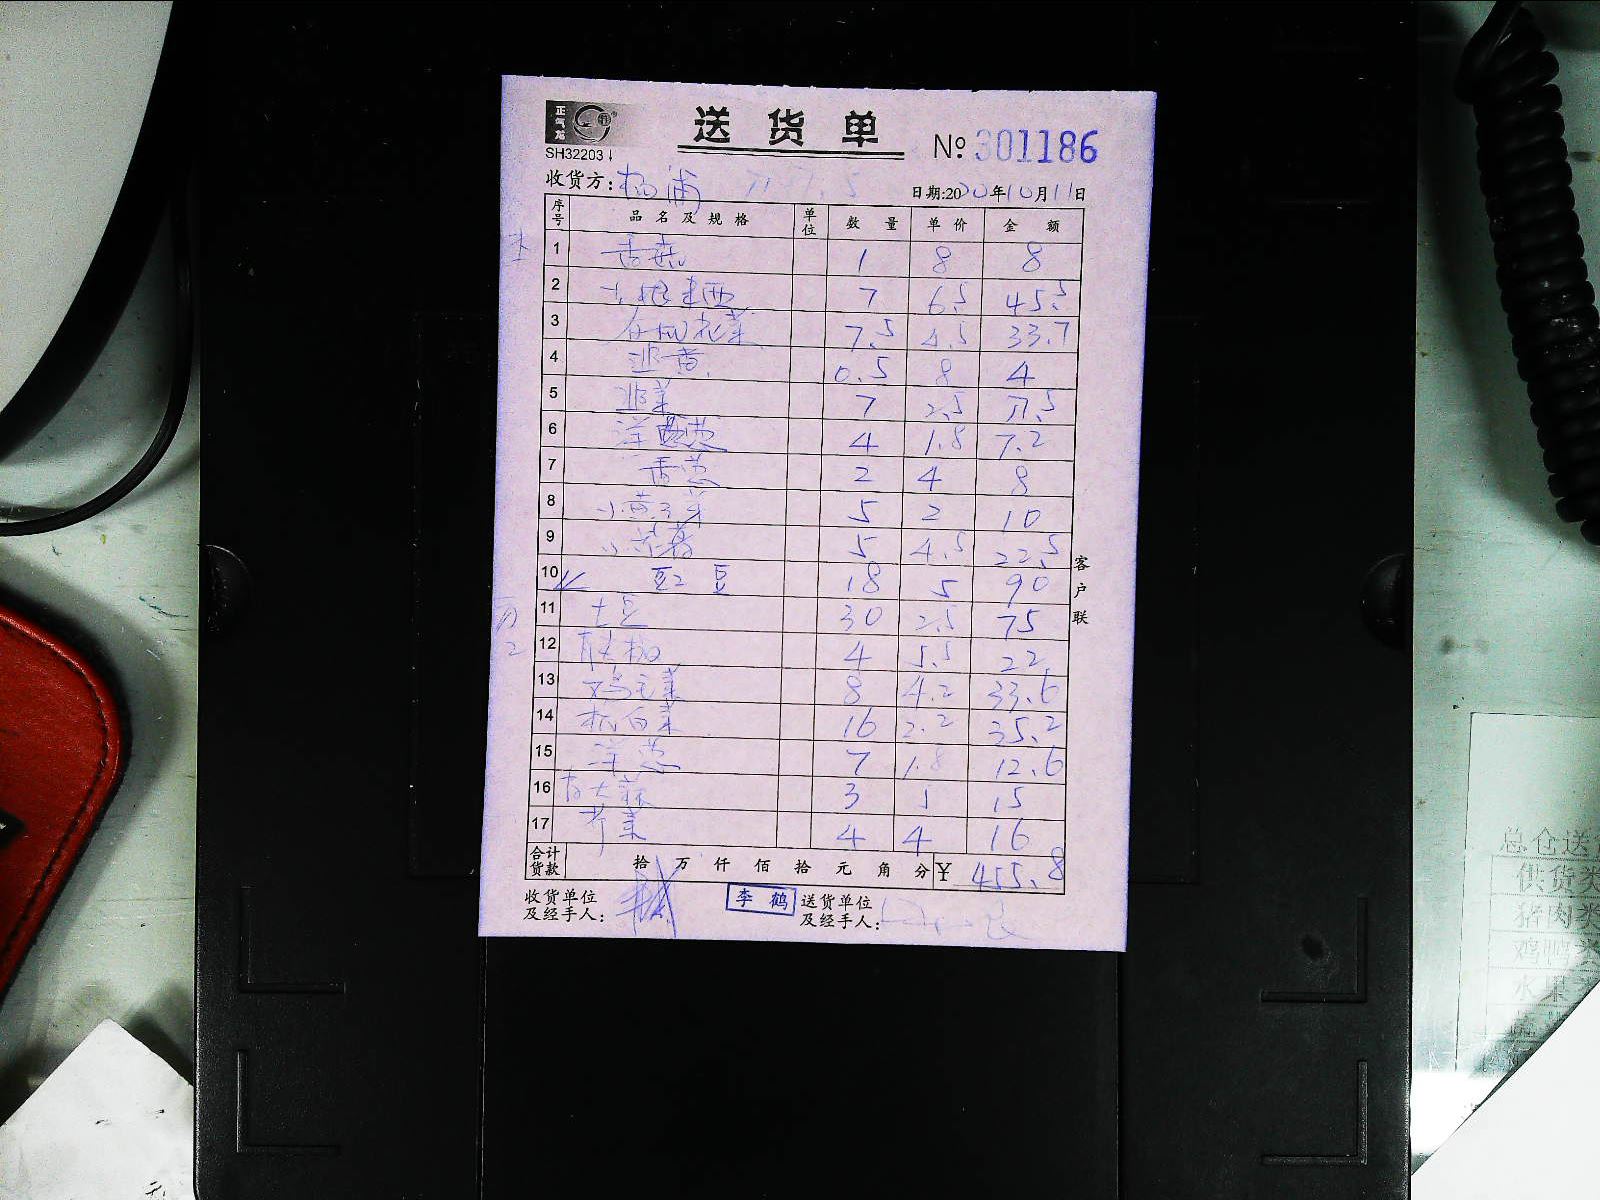 正气龙
送货单
№ 301186
SH32203
收货方: 杨浦
日期:2020年10月11日
序号 品名及规格 单位 数量 单价 金额
1 香菇 1 8 8
2 7 6.5 45.5
3 有机花菜 7.5 4.5 33.7
4 韭黄 0.5 8 4
5 韭菜 7 2.5 17.5
6 洋葱 4 1.8 7.2
7 香葱 2 4 8
8 小黄豆芽 5 2 10
9 5 4.5 22.5
10 豇豆 18 5 90
11 土豆 30 2.5 75
12 4 5.5 22
13 鸡毛菜 8 4.2 33.6
14 杭白菜 16 2.2 35.2
15 洋葱 7 1.8 12.6
16 青大蒜 3 5 15
17 芹菜 4 4 16
合计货款 拾 万 仟 佰 拾 元 角 分 ¥ 455.8
客户联
收货单位及经手人:
李鹤
送货单位及经手人:
总仓送
供货类
猪肉类
鸡鸭类
水果类